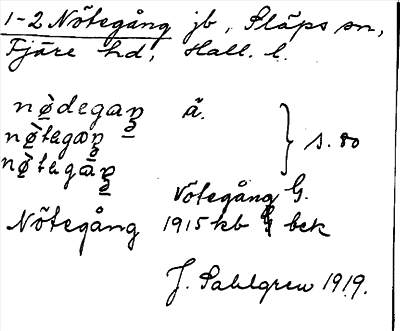 1-2 Nötegång jb, Släps sn,
Fjäre hd, Hall. l.
nø̀degaŋ ä.
nø̀tegaŋ } s. 80
nø̀tegäŋ
Nötegång G.
Nötegång 1915 kb G bek
J. Sahlgren 1919.